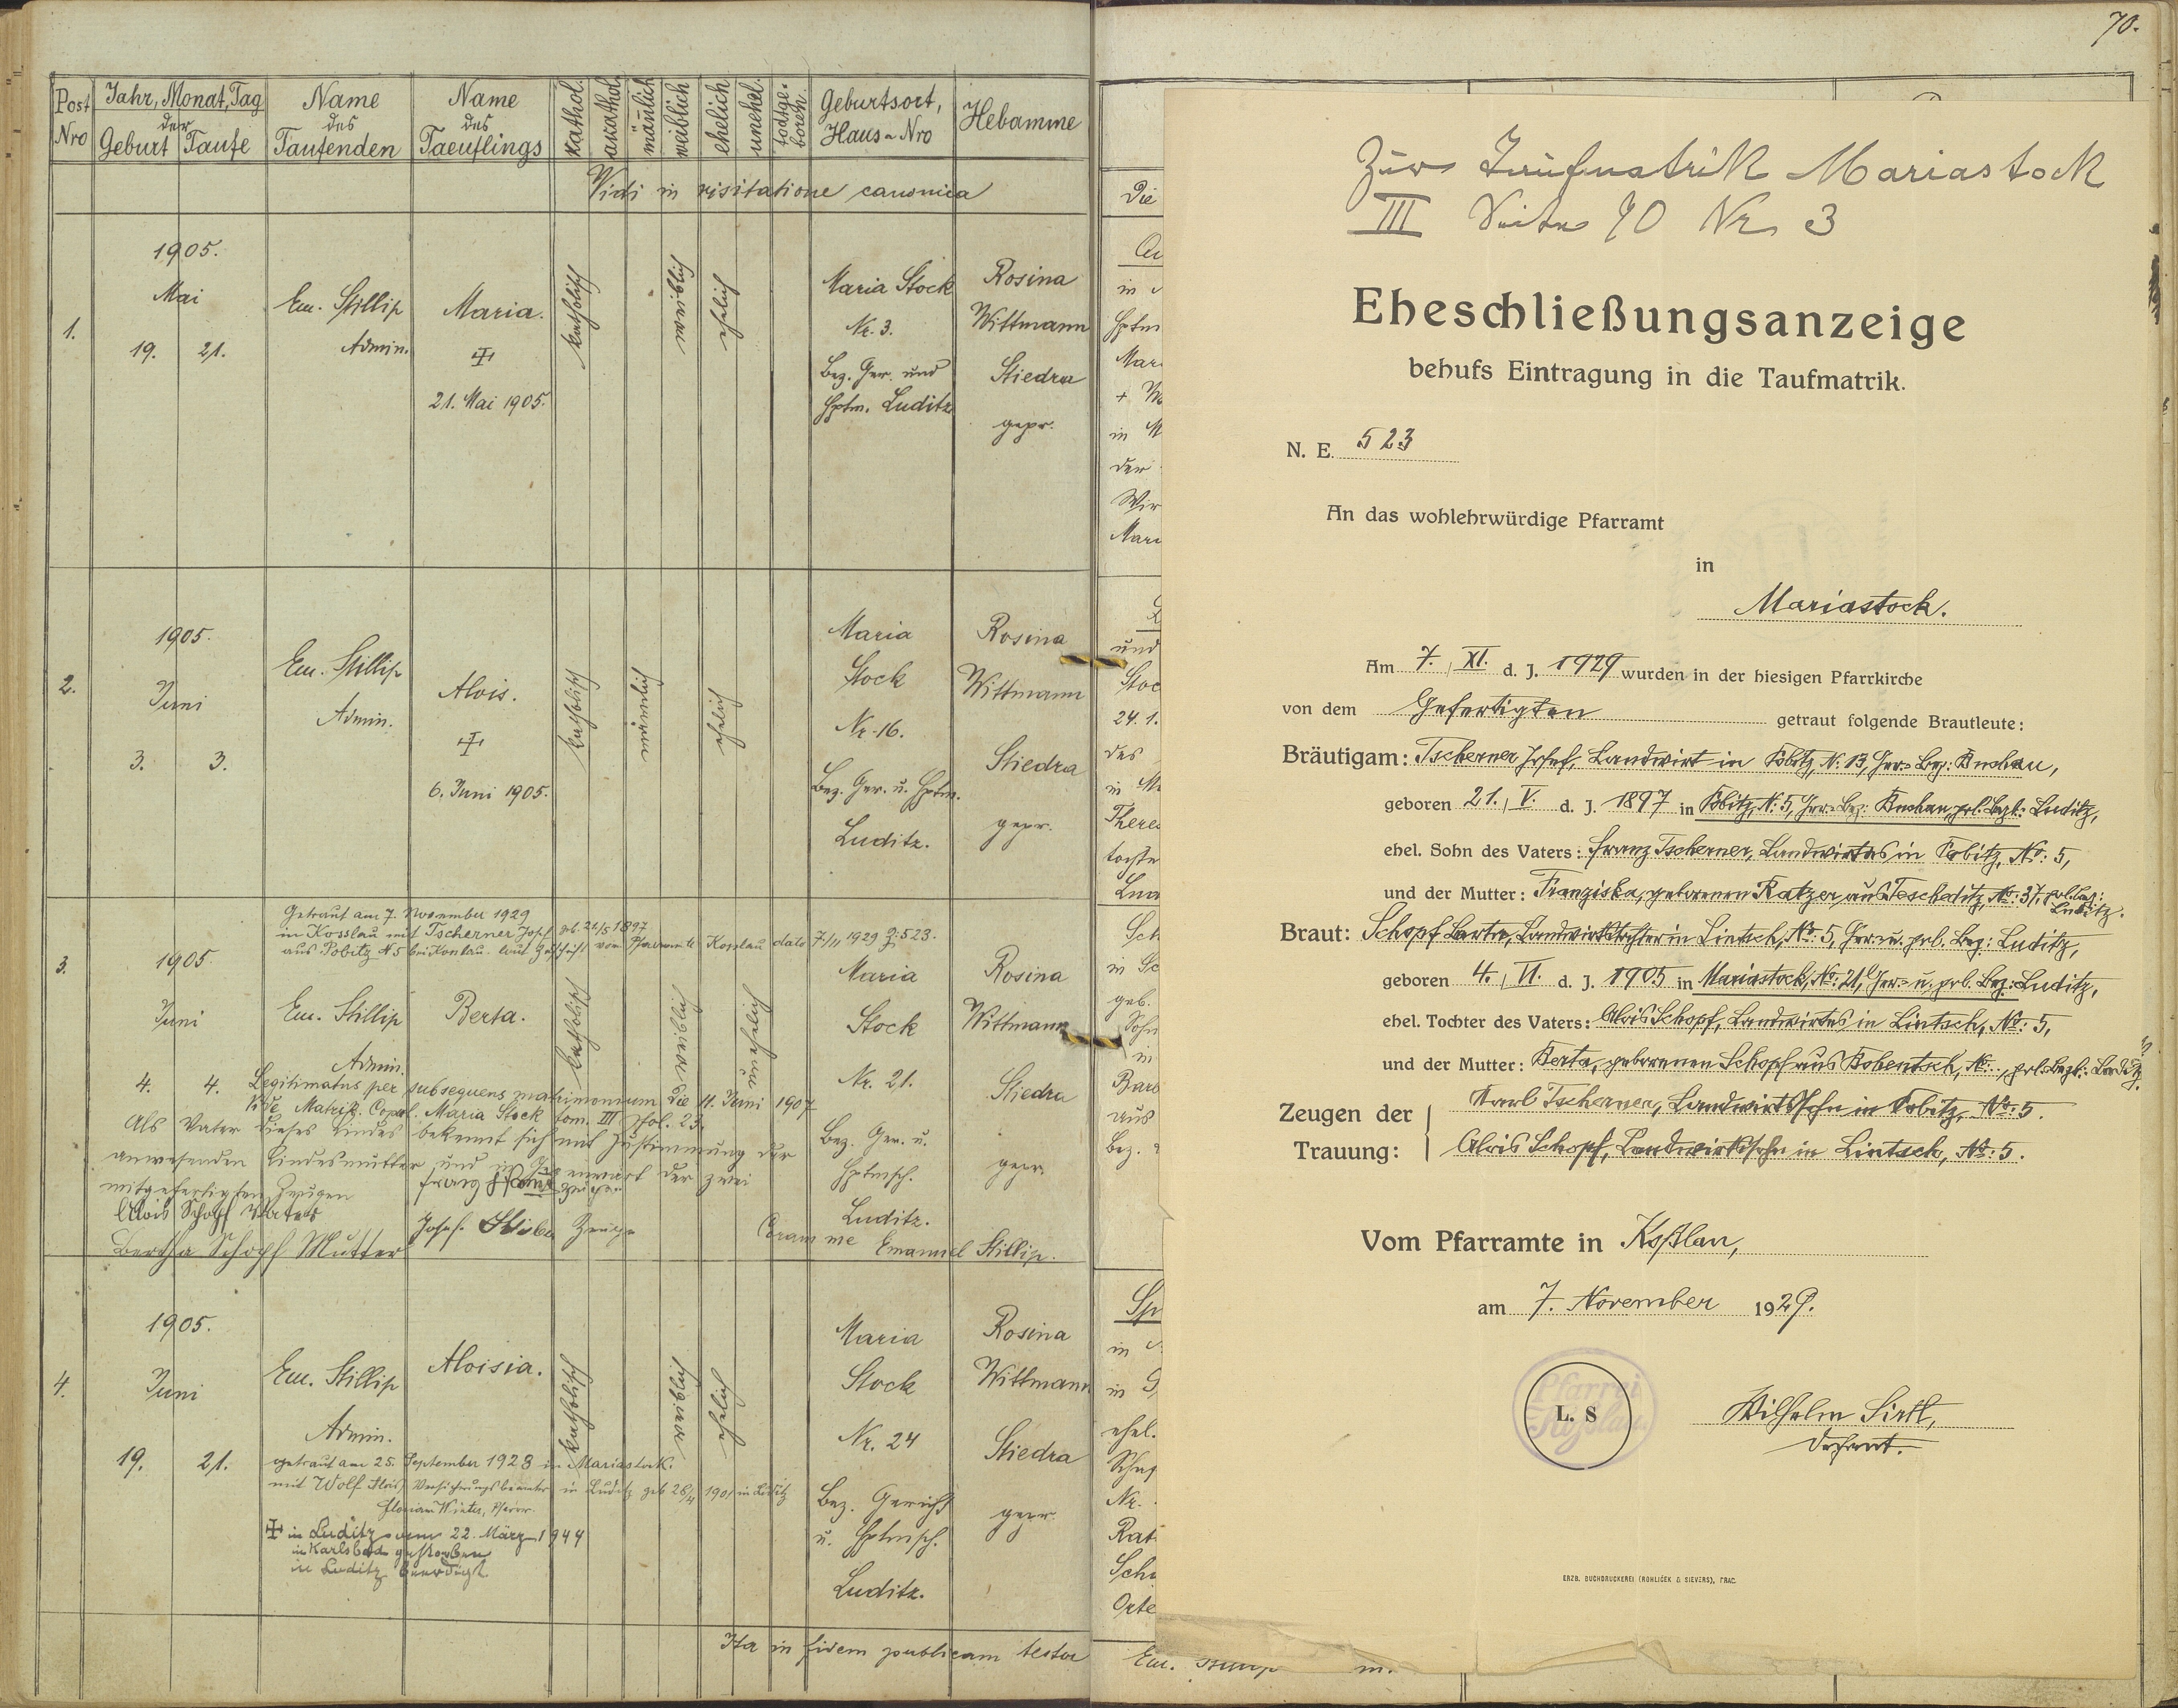 Post Nro
Jahr, Monat, Tag
der
Geburt Taufe
Name des Taufenden
Name des Taeuflings
kathol.
akathol.
männlich
weiblich
ehelich
unehel.
todtgeboren.
Geburtsort, Haus-Nro
Hebamme
Vidi in visitatione canonica
1.
1905.
Mai
19. 21.
Em. Stillip
Admin.
Maria.
21. Mai 1905.
katholisch
weiblich
ehelich
Maria Stock
Nr. 3.
Bez. Ger. und
Hptm. Luditz
Rosina
Wittmann
Stiedra
gepr.
2.
1905.
Juni
3. 3.
Em. Stillip
Admin.
Alois.
6. Juni 1905.
katholisch
männlich
ehelich
Maria
Stock
Nr. 16.
Bez. Ger. u. Hptm.
Luditz.
Rosina
Wittmann
Stiedra
gepr.
Getraut am 7. November 1929
in Kosslau mit Tscherner Josef geb. 21/5 1897
aus Pobitz N 5 bei Koslau laut Zuschrift vom Pfarramte Kosslau dato 7/11 1929 Z: 523.
3.
1905
Juni
4. 4.
Em. Stillip
Admin.
Berta.
katholisch
weiblich
unehelich
Maria
Stock
Nr. 21.
Bez. Ger. u.
Hptmsch.
Luditz.
Rosina
Wittmann
Stiedra
gepr.
Legitimatus per subsequens matrimonium die 11. Juni 1907
Vide Matrik. Copul. Maria Stock tom. III fol. 23.
Als Vater dieses Kindes bekennt sich mit Zustimmung der
anwesenden Kindesmutter und in Gegenwart der zwei
mitgefertigten Zeugen
Alois Schopf Vater
Josef Zeuge
Bertha Schopf Mutter
Coram me Emanuel Stillip.
4.
1905.
Juni
19. 21.
Em. Stillip
Admin.
Aloisia.
katholisch
weiblich
ehelich
Maria
Stock
Nr. 24
Bez. Gericht
u. Hptmsch.
Luditz.
Rosina
Wittmann
Stiedra
gepr.
getraut am 25. September 1928 in Mariastock
mit Wolf Alois, Versicherungsbeamter in Luditz geb 26/4 1901 in Luditz
Florian Winter, Pfarrer.
in Luditz am 22. März 1944
in Karlsbad gestorben
in Luditz beerdigt
Ita in fidem publicam testor
70.
Zur Taufmatrik Mariastock
III Seite 70 Nr. 3
Eheschließungsanzeige
behufs Eintragung in die Taufmatrik.
N. E. 523
An das wohlehrwürdige Pfarramt
in
Mariastock.
Am 7. XI. d. J. 1929 wurden in der hiesigen Pfarrkirche
von dem Gefertigten getraut folgende Brautleute:
Bräutigam: Tscherner Josef, Landwirt in Pobitz, N: 13, Ger.-Bez: Buchau,
geboren 21. V. d. J. 1897 in Pobitz, N: 5, Ger.-Bez: Buchau, pol. Bezk: Luditz,
ehel. Sohn des Vaters: Franz Tscherner, Landwirtes in Pobitz, No: 5,
und der Mutter: Franziska, geborenen Ratzer aus Teschetitz, No: 37, pol. Bez: Luditz.
Braut: Schopf Berta, Landwirtstochter in Lintsch, No: 5, Ger. u. pol. Bez: Luditz,
geboren 4. VI. d. J. 1905 in Mariastock, No: 21, Ger.- u. pol. Bez: Luditz,
ehel. Tochter des Vaters: Alois Schopf, Landwirtes in Lintsch, No: 5,
und der Mutter: Berta, geborenen Schopf aus Kobentsch, No: , pol. Bezk: Luditz.
Zeugen der Trauung:
Karl Tscherner, Landwirtssohn in Pobitz, No: 5.
Alois Schopf, Landwirtssohn in Lintsch, No: 5.
Vom Pfarramte in Koßlau,
am 7. November 1929.
Pfarrei
Koßlau
L. S
Wilhelm Sirtl,
Dechant.
ERZB. BUCHDRUCKEREI (ROHLIČEK & SIEVERS), PRAG